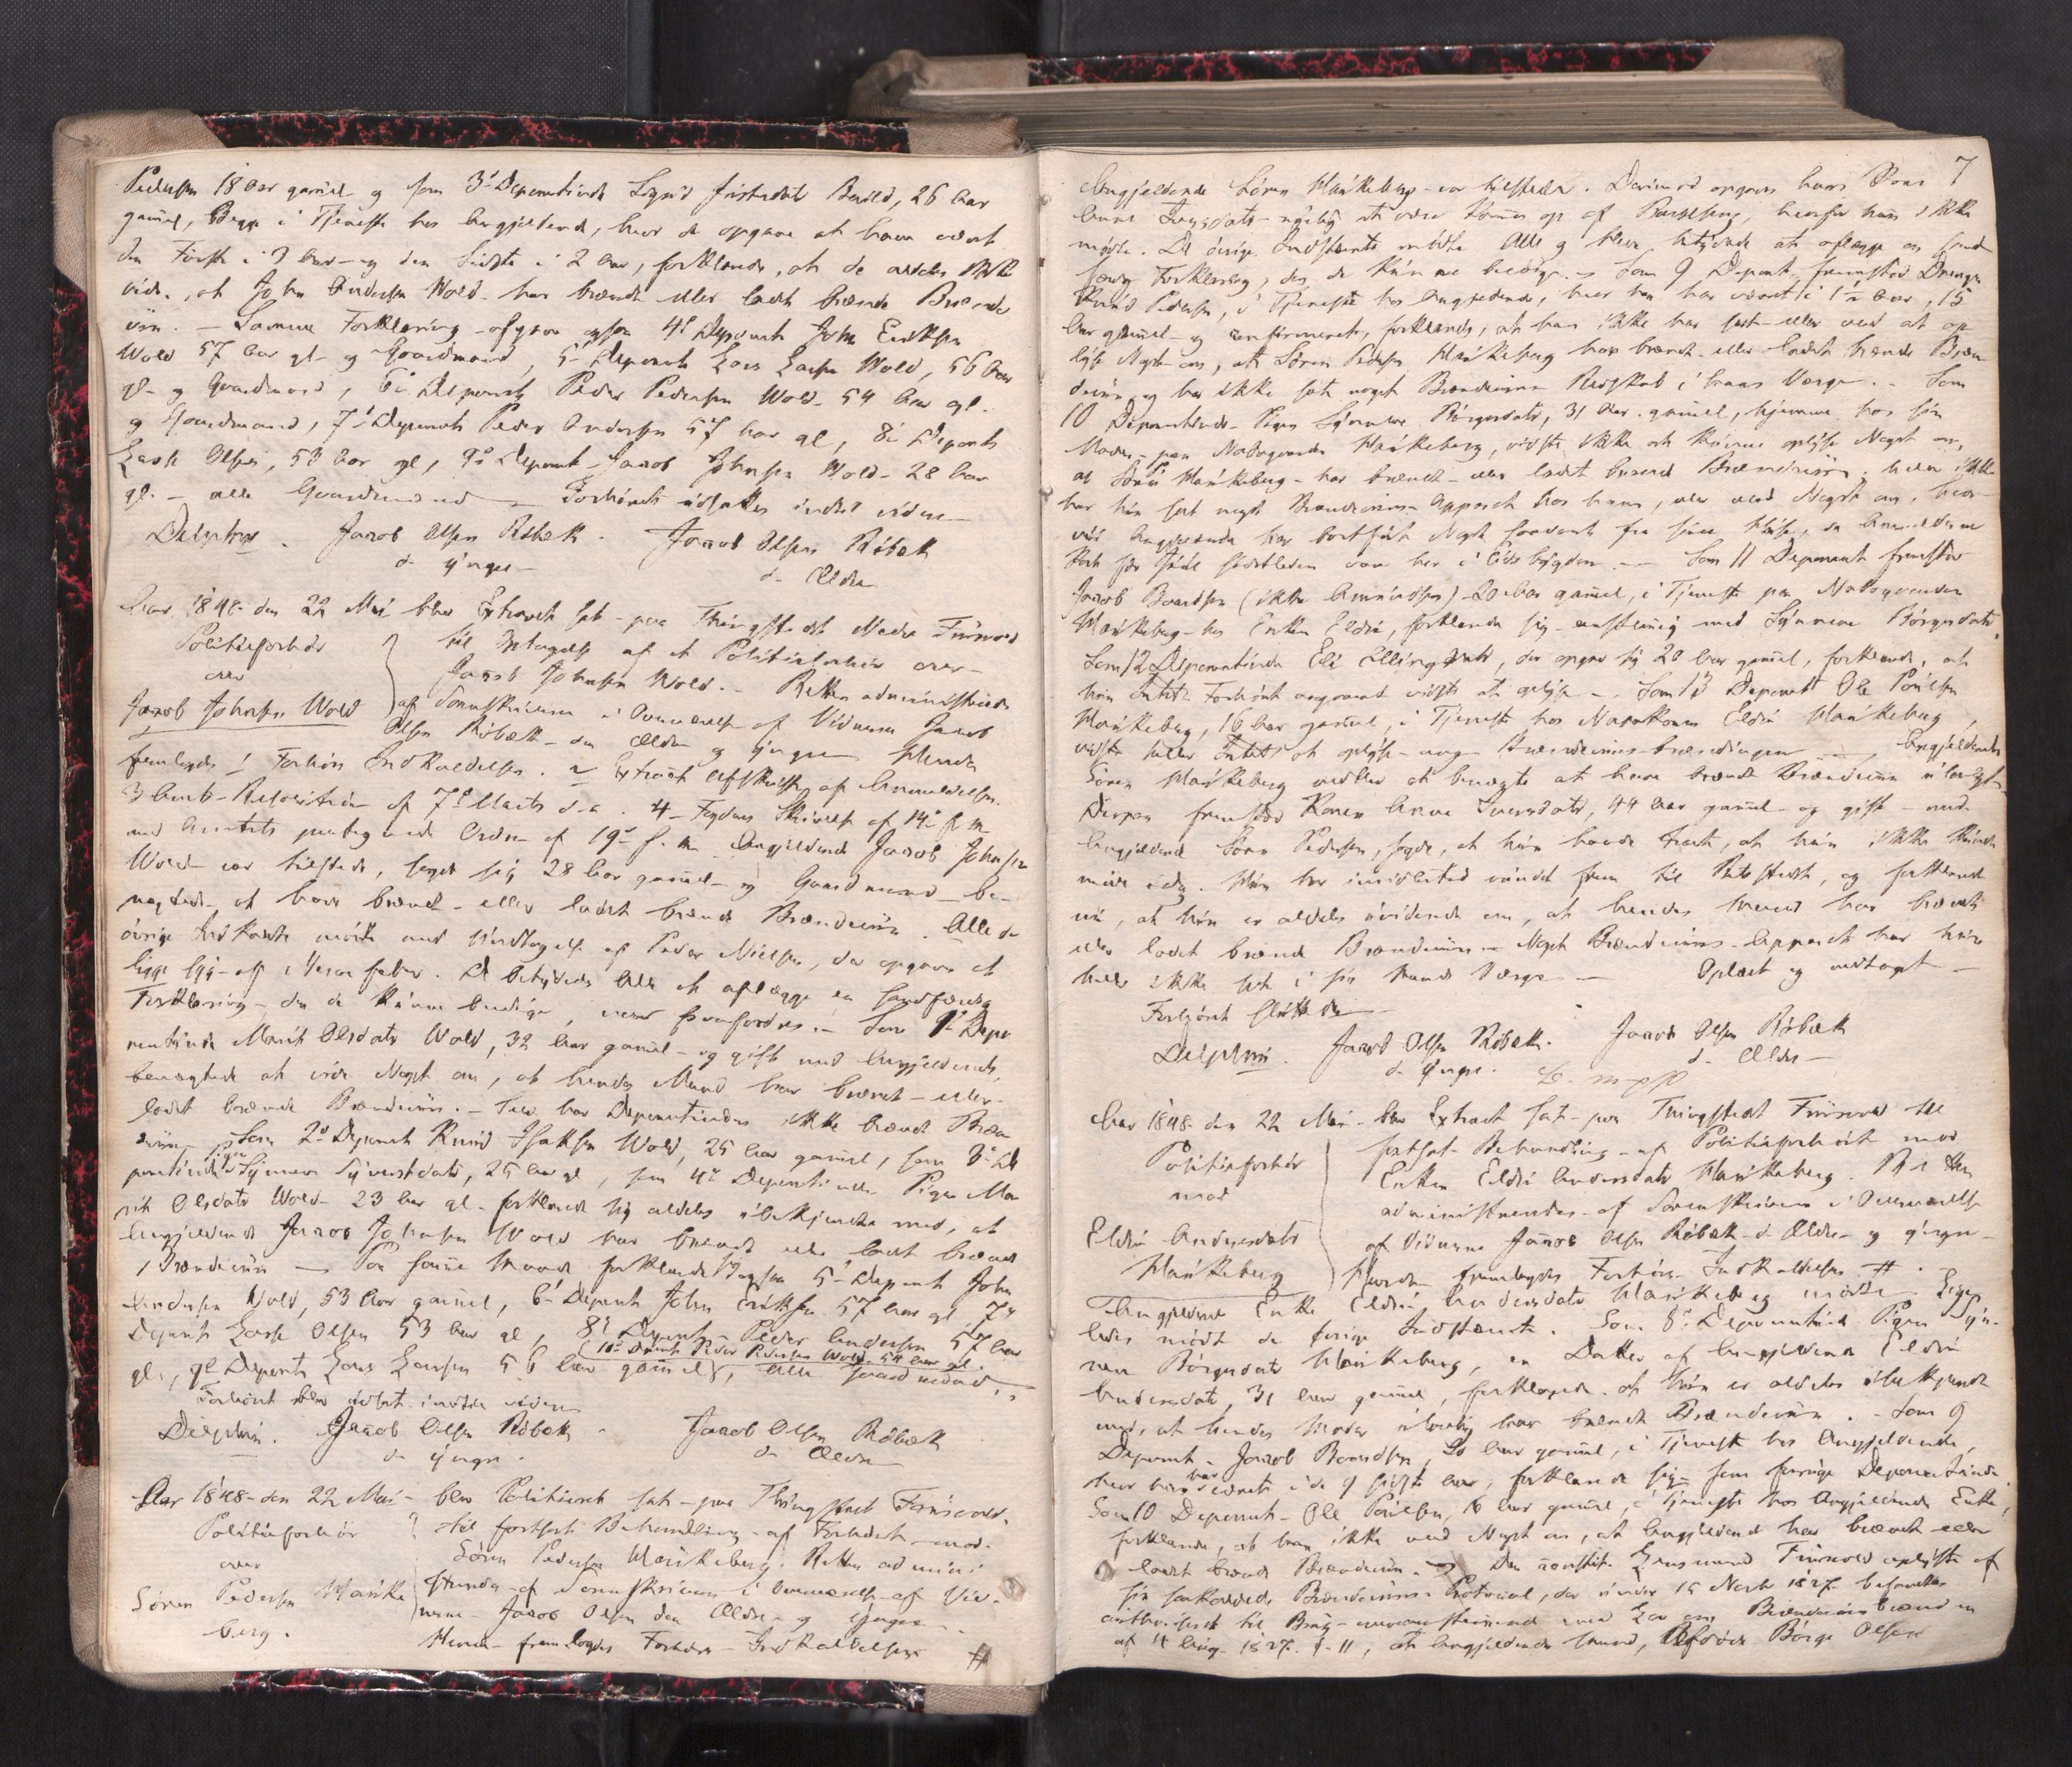 Pedersen 18 Aar gammel og som 3d Deponentinde Sigrid 26 Aar
gammel, Begge i Tjeneste hos Angjeldende, hvor de opgave at have været
den Første i 3 Aar og den Sidste i 2 Aar, forklarede, at de aldeles ikke
vide, at John Andersen Wold har brændt eller ladet brænde Brænde
viin. – Samme Forklaring afgave ogsaa 4d Deponent John Eriksen
Wold 57 Aar gl. og Gaardmand, 5 Deponent Lars Larsen Wold, 56 Aar
gl. og Gaardmand, 6 Deponent Peder Pedersen Wold 54 Aar gl.
og Gaardmand, 7 Deponent Peder Andersen 57 Aar gl, 8 Deponent
Lasse Olsen, 53 Aar gl, 9 Deponent Jacob Johnsen Wold 28 Aar
gl. – alle Gaardmænd – Forhøret udsattes indtil videre
Delphin. Jacob Olsen Röbæk. Jacob Olsen Röbæk
d. yngre d. Ældre
Aar 1848 den 22 Mai blev Extraret sat paa Thingstedet Nedre
Politieforhør til Optagelse af et Politieforhør over
over Jacob Johnsen Wold. – Retten administreredes
Jacob Johnsen Wold af Sorenskriveren i Overværelse af Vidnerne Jacob
Olsen Röbæk den Ældre og Yngre Hvorda
fremlagdes 1 Forhørs Indkaldelsen. 2 Extract Afskrift af Anmeldelsen.
3 Amts Resolution af 7d Marts d. a. 4 Fogdens Skrivelse af 14 f. m.
med Amtets paategnede Ordre af 19 f. m. Angjeldende Jacob Johnsen
Wold var tilstede, sagde sig 28 Aar gammel og Gaardmand be-
nægtede at have brændt eller ladet brænde Brændeviin. Alle de
øvrige Indkaldte mødte med Undtagelse af Peder Nielsen, der opgaves at
ligge syg af Nervefeber. De betydedes Alle at aflægge en sandfærdig
Forklaring, den de kunne beedige, naar fremfordres. – Som 1 Depo
nentinde Marit Olsdatter Wold, 32 Aar gammel og gift med Angjeldende,
benægtede at vide Noget om, at hendes Mand har brændt eller
ladet brænde Brændeviin. – har Deponentinden ikke brændt Bræn
deviin. Som 2d Deponent Knud Isaksen Wold, 25 Aar gammel, som 3 De
ponentinde Pigen Synneve Syverdsdatter, 25 Aar gl, som 4 Deponentinde Pigen Ma
rit Olsdatter Wold 23 Aar gl. forklarede sig aldeles ubekjendte med, at
Angjeldende Jacob Johnsen Wold har brændt eller ladet brænde
Brændeviin – Paa samme Maade forklarede sig ogsaa 5 Deponent John
Andersen Wold, 53 Aar gammel, 6 Deponent John Eriksen 57 Aar gl, 7
Deponent Lasse Olsen 53 Aar gl, 8 Deponent Peder Andersen 57 Aar
gl, 9 Deponent Lars Larsen 56 Aar gammel, 10 Deponent Peder Pedersen Wold 54 Aar gl. alle Gaardmænd,
Forhøret blev udsat indtil videre
Delphin. Jacob Olsen Röbæk Jacob Olsen Röbæk
d yngre. d Ældre
Aar 1848 den 22 Mai blev Politieret sat paa Thingstedet
Politieforhør til fortsat Behandling af Forhøret mod
over Søren Pedersen Haukeberg. Retten admini
Søren Pedersen Hauke streredes af Sorenskriveren i Overværelse af Vid-
berg. nerne Jacob Olsen den Ældre og Yngre
Hvorda fremlagdes Forhørs Indkaldelsen #
7
Angjeldende Søren Haukeberg var tilstede. Derimod opgaves hans Kone
Anne Iversdatter nylig at være kommen op af Barselseng, hvorfor hun ikke
mødte. De øvrige Indstævnte mødte Alle og bleve betydede at aflægge en sand
færdig Forklaring, den de kunne beedige. – Som 9 Deponent fremstod Drengen
Knud Pedersen, i Tjeneste hos Angjeldende, hvor han har været i 1½ Aar, 15
Aar gammel og confirmeret, forklarede, at han ikke har seet eller veed at op
lyse Noget om, at Søren Pedersen Haukeberg har brændt eller ladet brænde Bræn
deviin, og har ikke seet noget Brændeviins Redskab i hans Værge. – Som
10 Deponentinde Pigen Synneve Børgesdatter, 31 Aar gammel, hjemme hos sin
Moder paa Nabogaarden Haukeberg, vidste ikke at kunne oplyse Noget om,
at Søren Haukeberg har brændt eller ladet brænde Brændeviin, heller ikke
har hun seet noget Brændeviins Apparat hos ham, eller veed Noget om, hvor
vidt Angjeldende har bortført Noget saadant fra sine Huse, da Anmelderne
kort før Juul sidstleden var her i Bygden. – Som 11 Deponent fremstod
Jacob Baardsen (ikke Amundsen) 20 Aar gammel, i Tjeneste paa Nabogaarden
Haukeberg hos Enken Eldri, forklarede sig eenstemmig med Synneve Børgesdatter,
Som 12 Deponentinde Eli Ellingsdatter, der opgav sig 20 Aar gammel, forklarede, at
hun Intet Forhøret angaaende vidste at oplyse –. Som 13 Deponent Ole Poulsen
Haukeberg, 16 Aar gammel, i Tjeneste hos Nabokonen Eldri Haukeberg,
vidste heller Intet at oplyse noget Brændeviins brændingen – Angjeldende
Søren Haukeberg vedblev at benægte at have brændt Brændeviin ulovligt.
Derpaa fremstod Konen Anne Iversdatter, 44 Aar gammel og gift med
Angjeldende Søren Pedersen, sagde, at hun havde troet, at hun ikke kunde
møde idag. Hun har imidlertid vundet frem til Retsstedet, og forklarede
nu, at hun er aldeles uvidende om, at hendes Mand har brændt
eller ladet brænde Brændeviin – Noget Brændeviins Apparat har hun
heller ikke seet i sin Mands Værge – Oplæst og vedtaget –
Forhøret sluttedes
Delphin. Jacob Olsen Röbæk. Jacob Olsen Röbæk
d yngre. d. Ældre
Aar 1848 den 22 Mai blev Extraret sat paa Thingstedet til
Politieforhør fortsat Behandling af Politieforhøret mod
mod Enken Eldri Andersdatter Haukeberg. Retten
administreredes af Sorenskriveren i Overværelse
Eldri Andersdatter af Vidnerne Jacob Olsen Röbæk d Ældre og yngre
Haukeberg Hvorda fremlagdes Forhørs Indkaldelsen #.
Angjeldende Enke Eldri Andersdatter Haukeberg mødte Lige-
ledes mødte de øvrige Indstævnte. Som 8 Deponentinde Pigen Syn-
neve Børgesdatter Haukeberg, en Datter af Angjeldende Eldri
Andersdatter, 31 Aar gammel, forklarede at hun er aldeles ubekjendt
med, at hendes Moder ulovlig har brændt Brændeviin. – Som 9
Deponent Jacob Baardsen, 20 Aar gammel, i Tjeneste hos Angjeldende,
hvor han har været i de 9 sidste Aar, forklarede sig som forrige Deponentinde
Som 10 Deponent Ole Poulsen, 16 Aar gammel, i Tjeneste hos Angjeldende Enke,
forklarede, at han ikke veed Noget om, at Angjeldende har brændt eller
ladet brænde Brændeviin. – Den constit. Lensmand oplyste af
sin saakaldede Brændeviins Protocol, der under 15 Novbr 1827 befandtes
authoriseret til Brug overeensstemmende med Lov om Brændeviinsbrænden
af 4 Aug 1827 § 11, at Angjeldendes Mand, Afdøde Børge Olsen